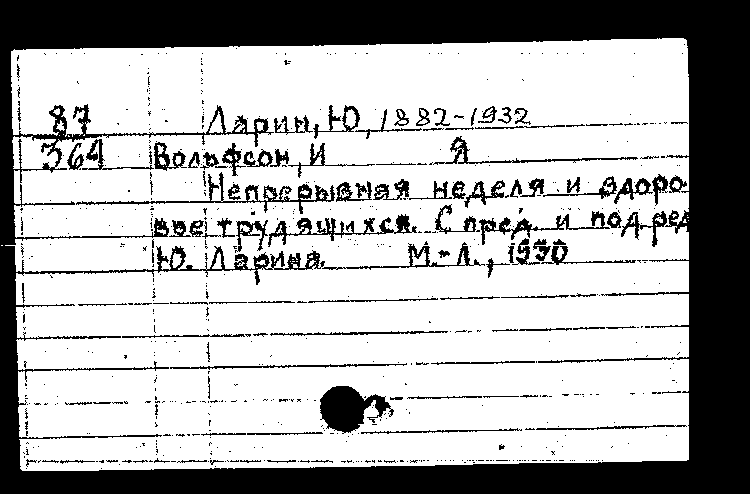 87 Ларин, Ю, 1882-1932
364 Вольфсон, И Я
Непрерывная неделя и здоро-
вье трудящихся. С пред. и под ред
Ю. Ларина. М.-Л., 1930